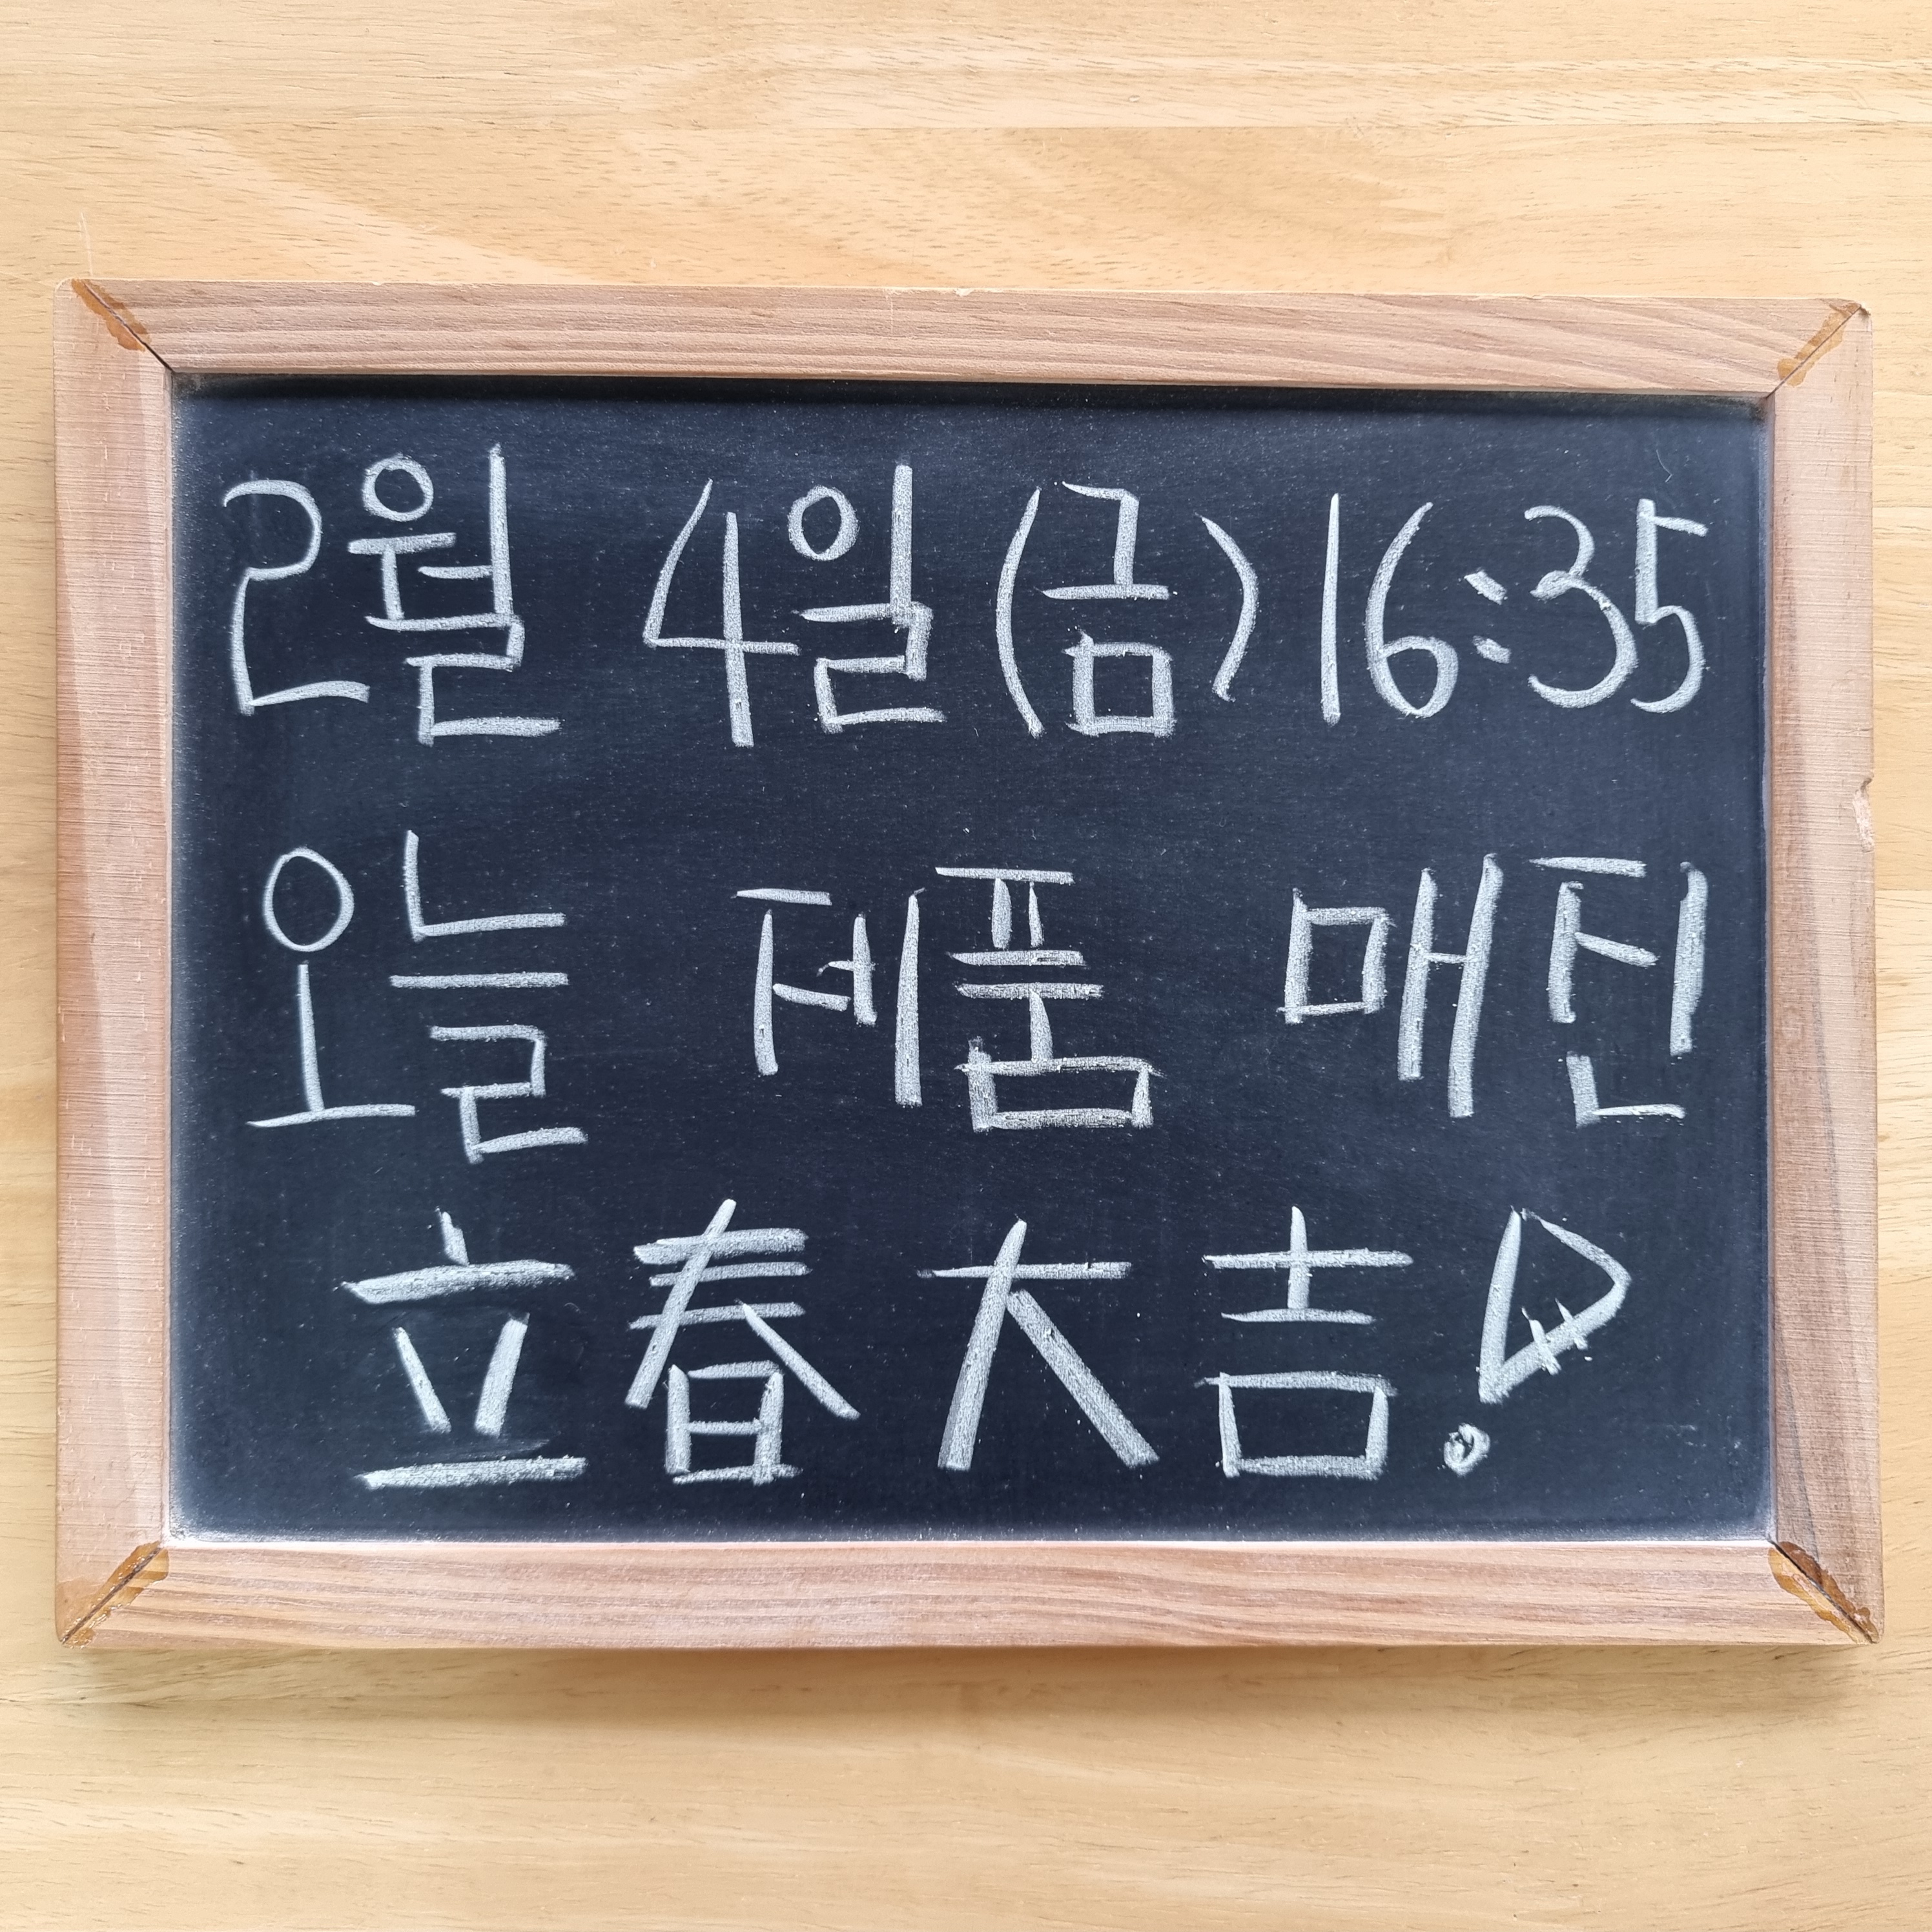 2월 4일(금) 16:35
오늘 제품 매진
立春大吉!